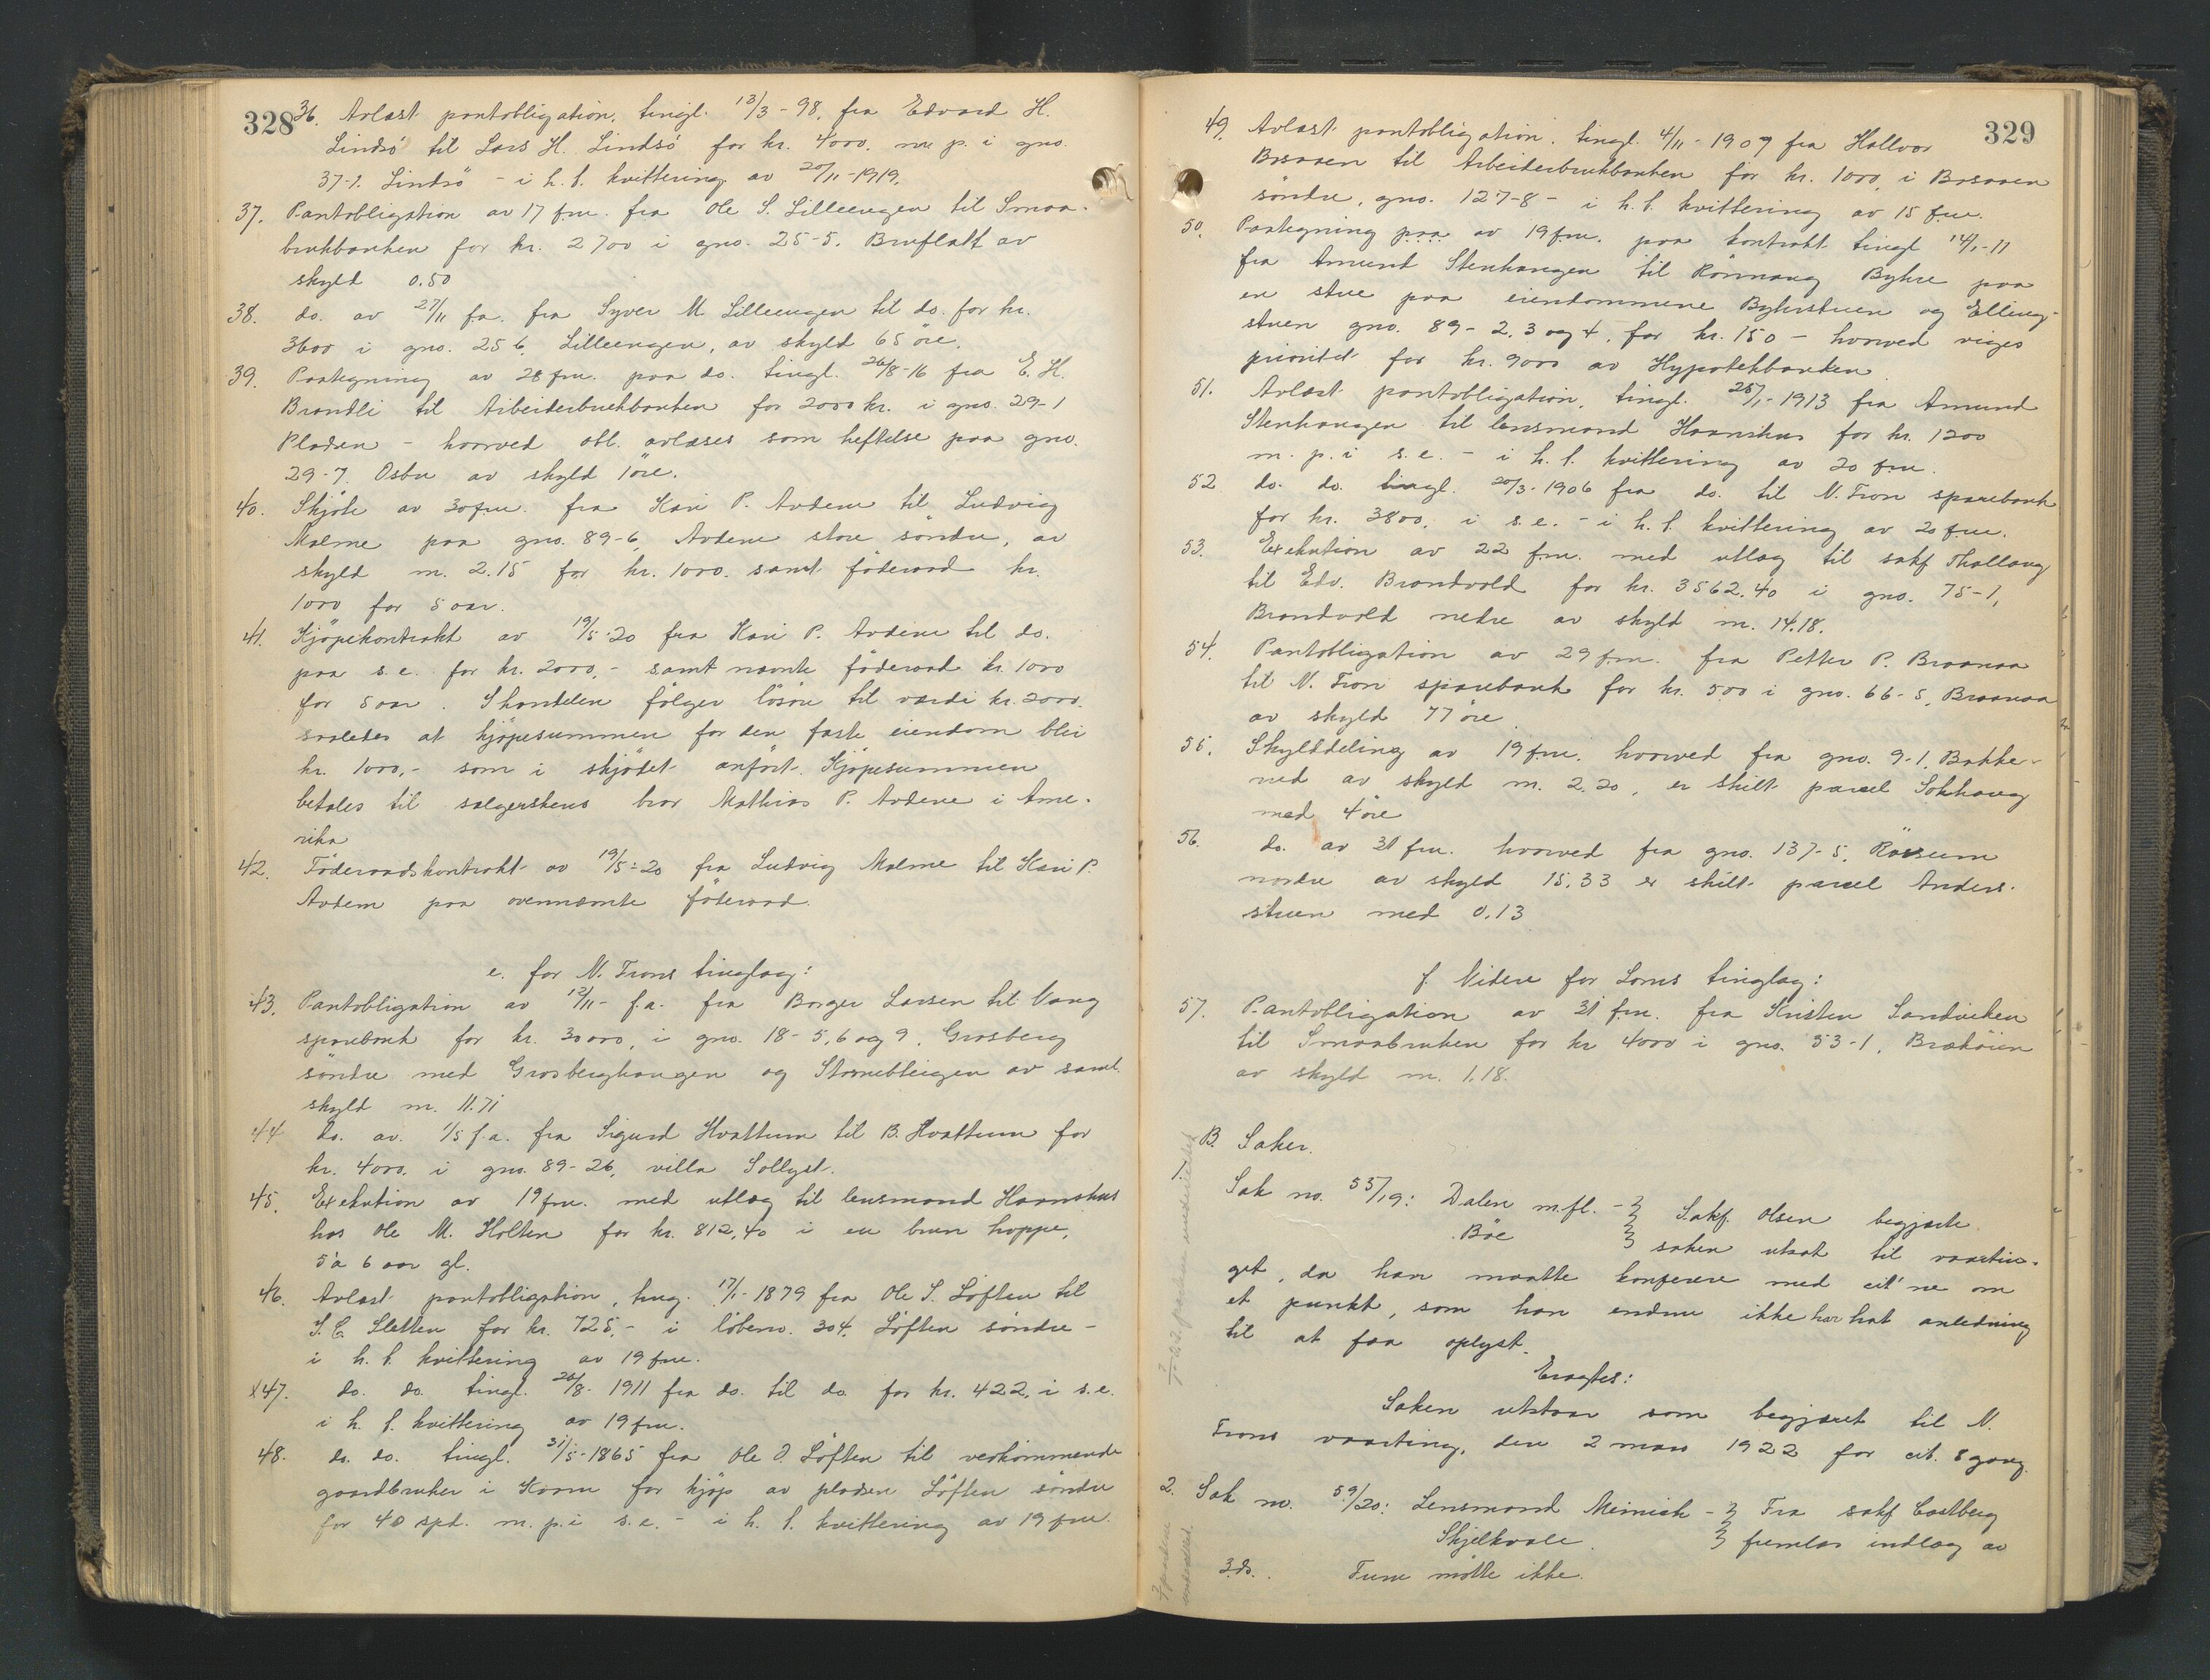 328
36. Avlæst pantobligation, tingl. 13/3-98, fra Edvard H.
Lindsö til Lars H. Lindsö for kr. 4000, m. p. i gno.
37-1. Lindsö - i h. t. kvittering av 20/11-1919.
37. Pantobligation av 17 f.m. fra Ole S. Lilleengen til Smaa-
brukbanken for kr. 2700 i gno. 25-5. Bruflatt av
skyld 0.50
38. do. av 27/11 f.a. fra Syver M. Lilleengen til do. for kr.
3600 i gno. 25 6, Lilleengen, av skyld 65 öre.
39. Paategning av 28 f.m. paa do. tingl. 26/8-16 fra E. H.
Brandli til Arbeiderbrukbanken for 2000 kr. i gno. 29-1
Pladsen - hvorved obl. avlæses som heftelse paa gno.
29-7. Osbu av skyld 1öre.
40. Skjöte av 30 f.m. fra Kari P. Avdem til Ludvig
Malme paa gno. 89-6, Avdem store söndre, av
skyld m. 2.15 for kr. 1000. samt föderaad kr.
1000 for 5 aar.
41. Kjöpekontrakt av 19/5-20 fra Kari P. Avdem til do.
paa s.e. for kr. 2000,- samt nævnte föderaad kr. 1000
for 5 aar. I handelen fölger lösöre til værdi kr. 2000.
saaledes at kjöpesummen for den faste eiendom blir
kr. 1000,- som i skjödet anfört. Kjöpesummen
betales til sælgerskens bror Mathias P. Avdem i Ame-
rika
42. Föderaadskontrakt av 19/5-20 fra Ludvig Malme til Kari P.
Avdem paa ovennævnte föderaad.
e. for N. Frons tinglag:
43. Pantobligation av 12/11- f.a. fra Borger Larsen til Vang
sparebank for kr. 30000, i gno. 18-5,6 og 9. Grosberg
söndre med Grosberghaugen og av saml.
skyld m. 11.71
44 do. av. 1/5 f.a. fra Sigurd Hvattum til B. Hvattum for
kr. 4000. i gno. 89-26, villa Sollyst.
45. Exekution av 19 f.m. med utlæg til lensmand Haanshus
hos Ole M. Holten for kr. 812,40 i en brun hoppe,
5 à 6 aar gl.
46. Avlæst pantobligation, ting. 17/1-1879 fra Ole S. Löften til
S. C. Sletten for kr. 725,- i löbeno. 304, Löften söndre -
i h. t. kvittering av 19 f.m.
x47. do. do. tingl. 26/8-1911 fra do. til do. for kr. 422, i s.e.
i h. t. kvittering av 19 f.m.
48. do. do. tingl. 31/5-1865 fra Ole O. Löften til vedkommende
gaardbruker i Kvam for kjöp av pladsen Löften söndre
for 40 spd. m. p. i s.e. - i h. t. kvittering av 19 f.m.
329
49. Avlæst pantobligation, tingl. 4/11-1909 fra Hallvor
Brsaaen til Arbeiderbrukbanken for kr. 1000, i Brsaaen
söndre, gno. 127-8 - i h. t. kvittering av 15 f.m.
50. Paategning paa av 19 f.m. paa kontrakt tingl 14/1-11
fra Amund Stenhaugen til Rönnaug Bykre paa
en stue paa eiendommene Bykrestuen og Elling-
stuen gno. 89-2, 3 og 4, for kr. 150 - hvorved viges
prioritet for kr. 9000 av Hypotekbanken
51. Avlæst pantobligation, tingl. 25/1-1913 fra Amund
Stenhaugen til lensmand Haanshus for kr. 1200
m. p. i s.e. - i h. t. kvittering av 20 f.m.
52 do. do. tingl. 20/3-1906 fra do. til N. Fron sparebank
for kr. 3800, i s.e. - i h. t. kvittering av 20 f.m.
53. Exekution av 22 f.m. med utlæg til sakf Thallaug
til Edv. Brandvold for kr. 3562.40 i gno. 75-1,
Brandvold nedre av skyld m. 14.18.
54. Pantobligation av 29 f.m. fra Petter P. Braanaa
til N. Fron sparebank for kr. 500 i gno. 66-5, Braanaa
av skyld 77 öre.
55. Skylddeling av 19 f.m. hvorved fra gno. 9-1, Bakke-
rud av skyld m. 2.20, er skilt parcel Solhaug
med 4 öre
56. do. av 31 f.m. hvorved fra gno. 137-5, Rössum
nordre av skyld 15.33 er skilt parcel Anders-
stuen med 0.13
f. Videre for Loms tinglag:
57. Pantobligation av 31 f.m. fra Kristen Sandviken
til Smaabruken for kr 4000 i gno. 53-1, Bræköien
av skyld m. 1.18.
B. Saker.
1. Sak no. 55/19: Dalen m.fl. - Sakf. Olsen begjærte
Böe saken utsat til vaartin-
get, da han maatte konferere med cit'ne om
et punkt, som han endnu ikke har hat anledning
til at faa oplyst.
Eragtes:
Saken utstaar som begjæret til N.
Frons vaarting, den 2 mars 1922 for cit. 8 gang.
2. Sak no. 59/20: Lensmand Meinich - Fra sakf Castberg
Skjelkvale. fremlas indlæg av
3. do. Fure mötte ikke.